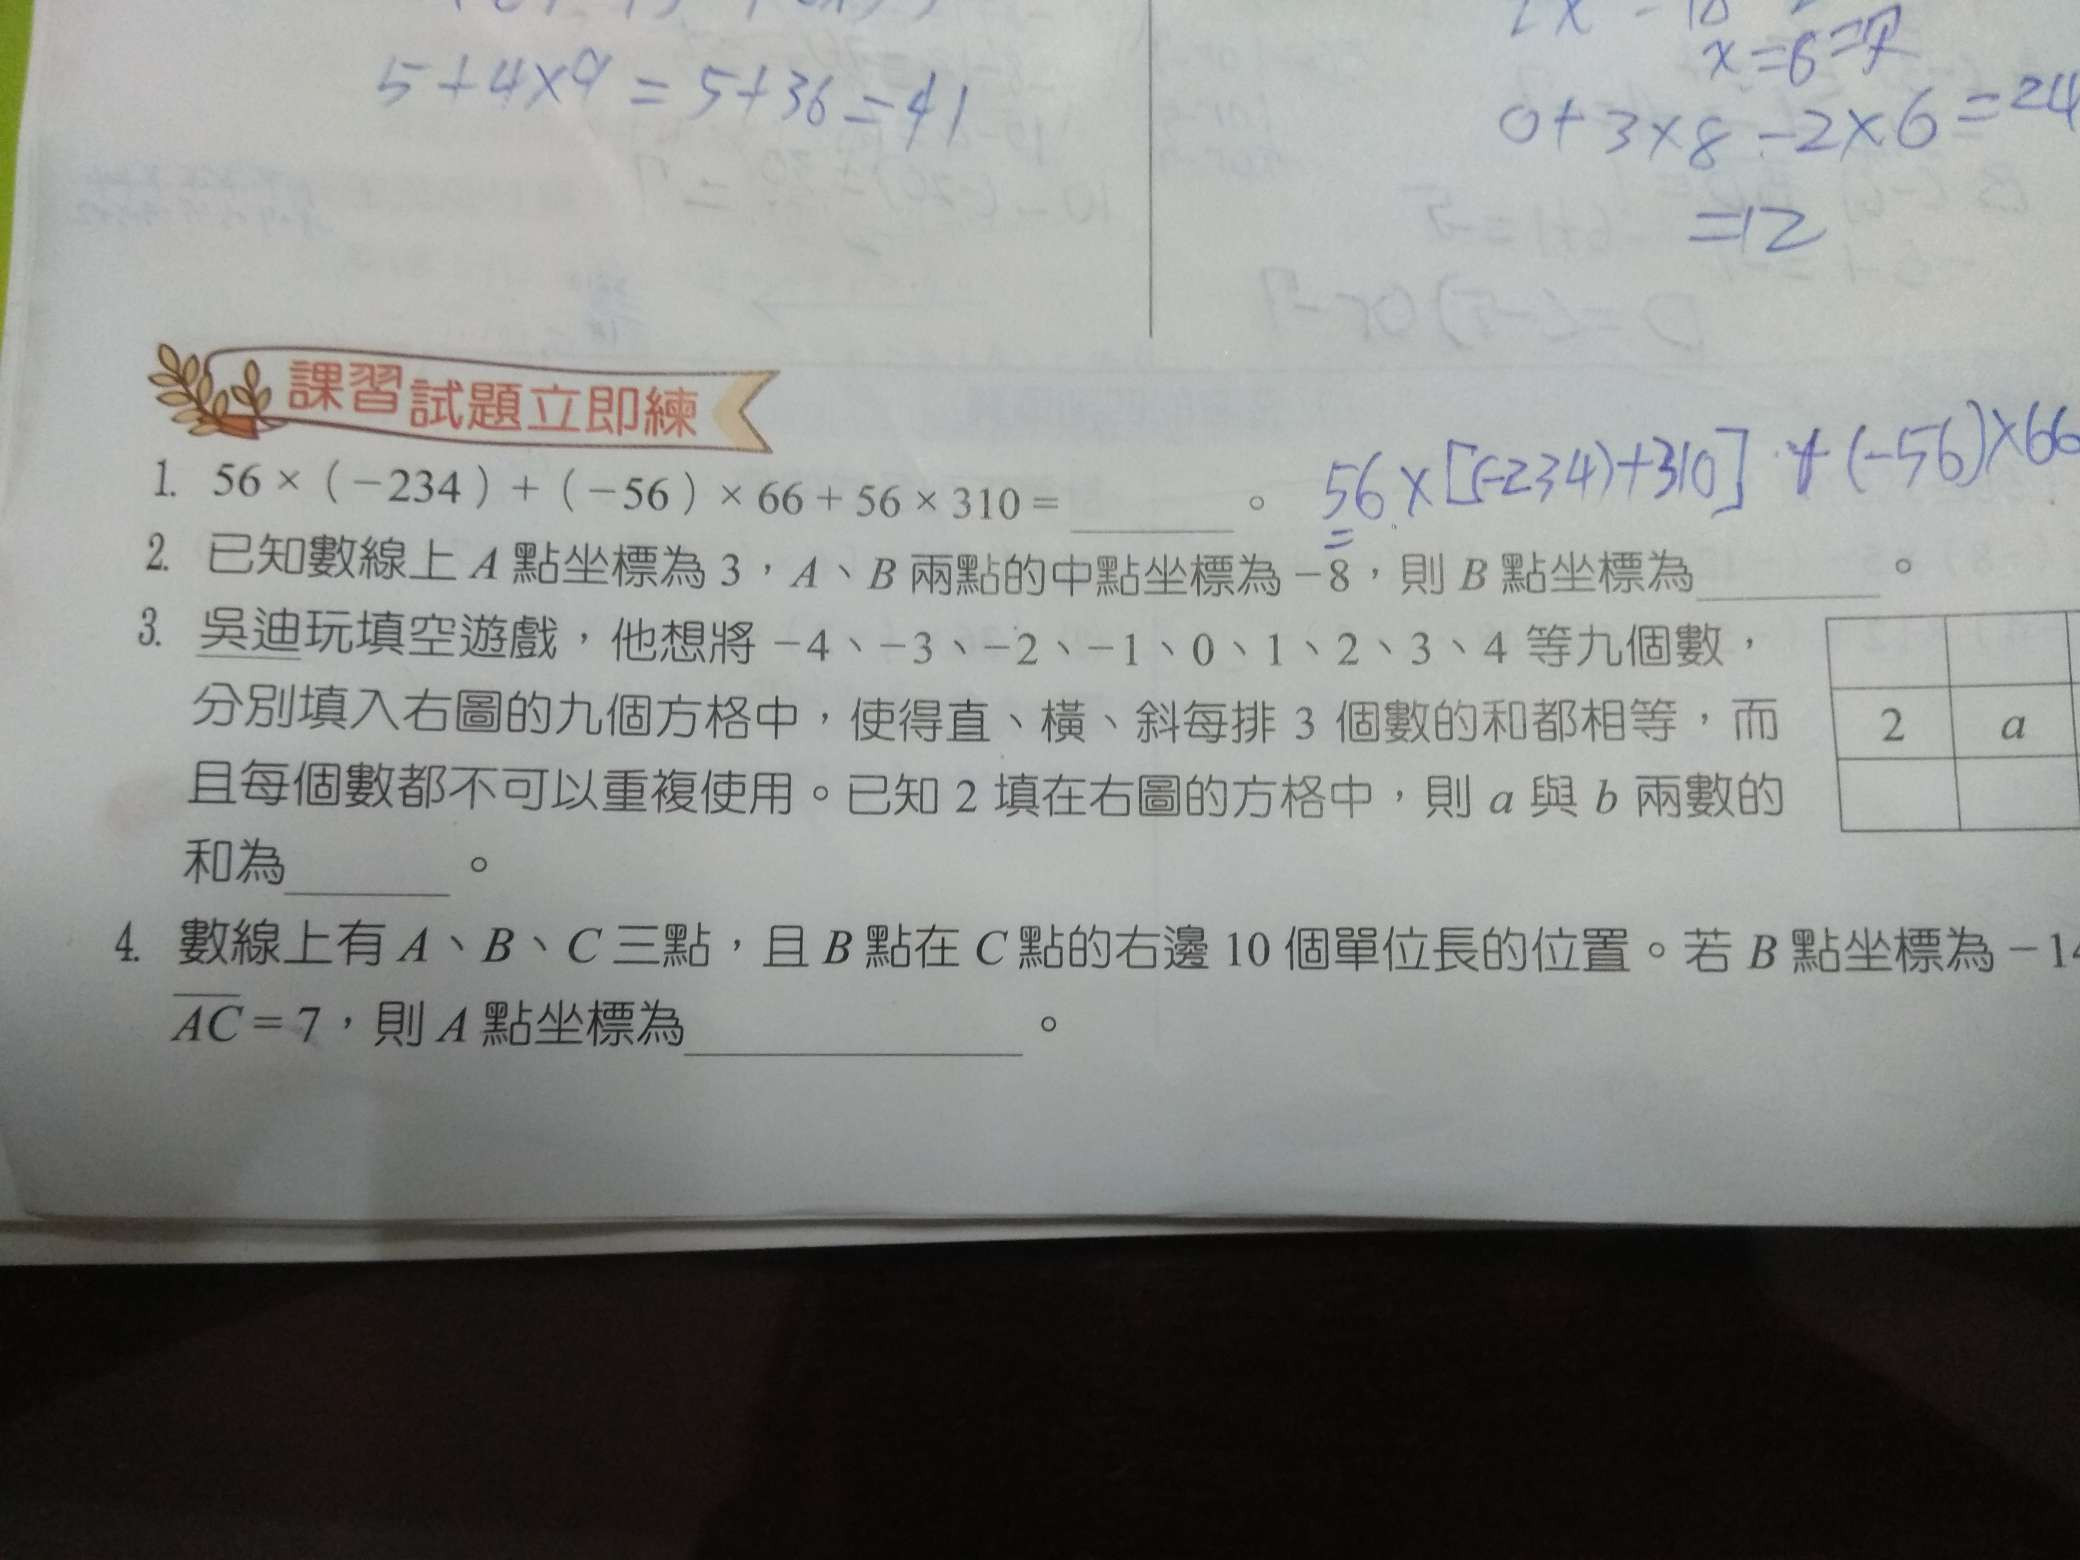 5+4×9=5+36=41
x=6
0+3×8-2×6=24
=12
課習試題立即練
1. 56×(-234)+(-56)×66+56×310=＿＿＿。
56×[(-234)+310]+(-56)×66
=
2. 已知數線上A點坐標為3，A、B兩點的中點坐標為-8，則B點坐標為＿＿＿。
3. 吳迪玩填空遊戲，他想將-4、-3、-2、-1、0、1、2、3、4等九個數，
分別填入右圖的九個方格中，使得直、橫、斜每排3個數的和都相等，而
且每個數都不可以重複使用。已知2填在右圖的方格中，則a與b兩數的
和為＿＿＿。
2 a
4. 數線上有A、B、C三點，且B點在C點的右邊10個單位長的位置。若B點坐標為-14
AC=7，則A點坐標為＿＿＿。